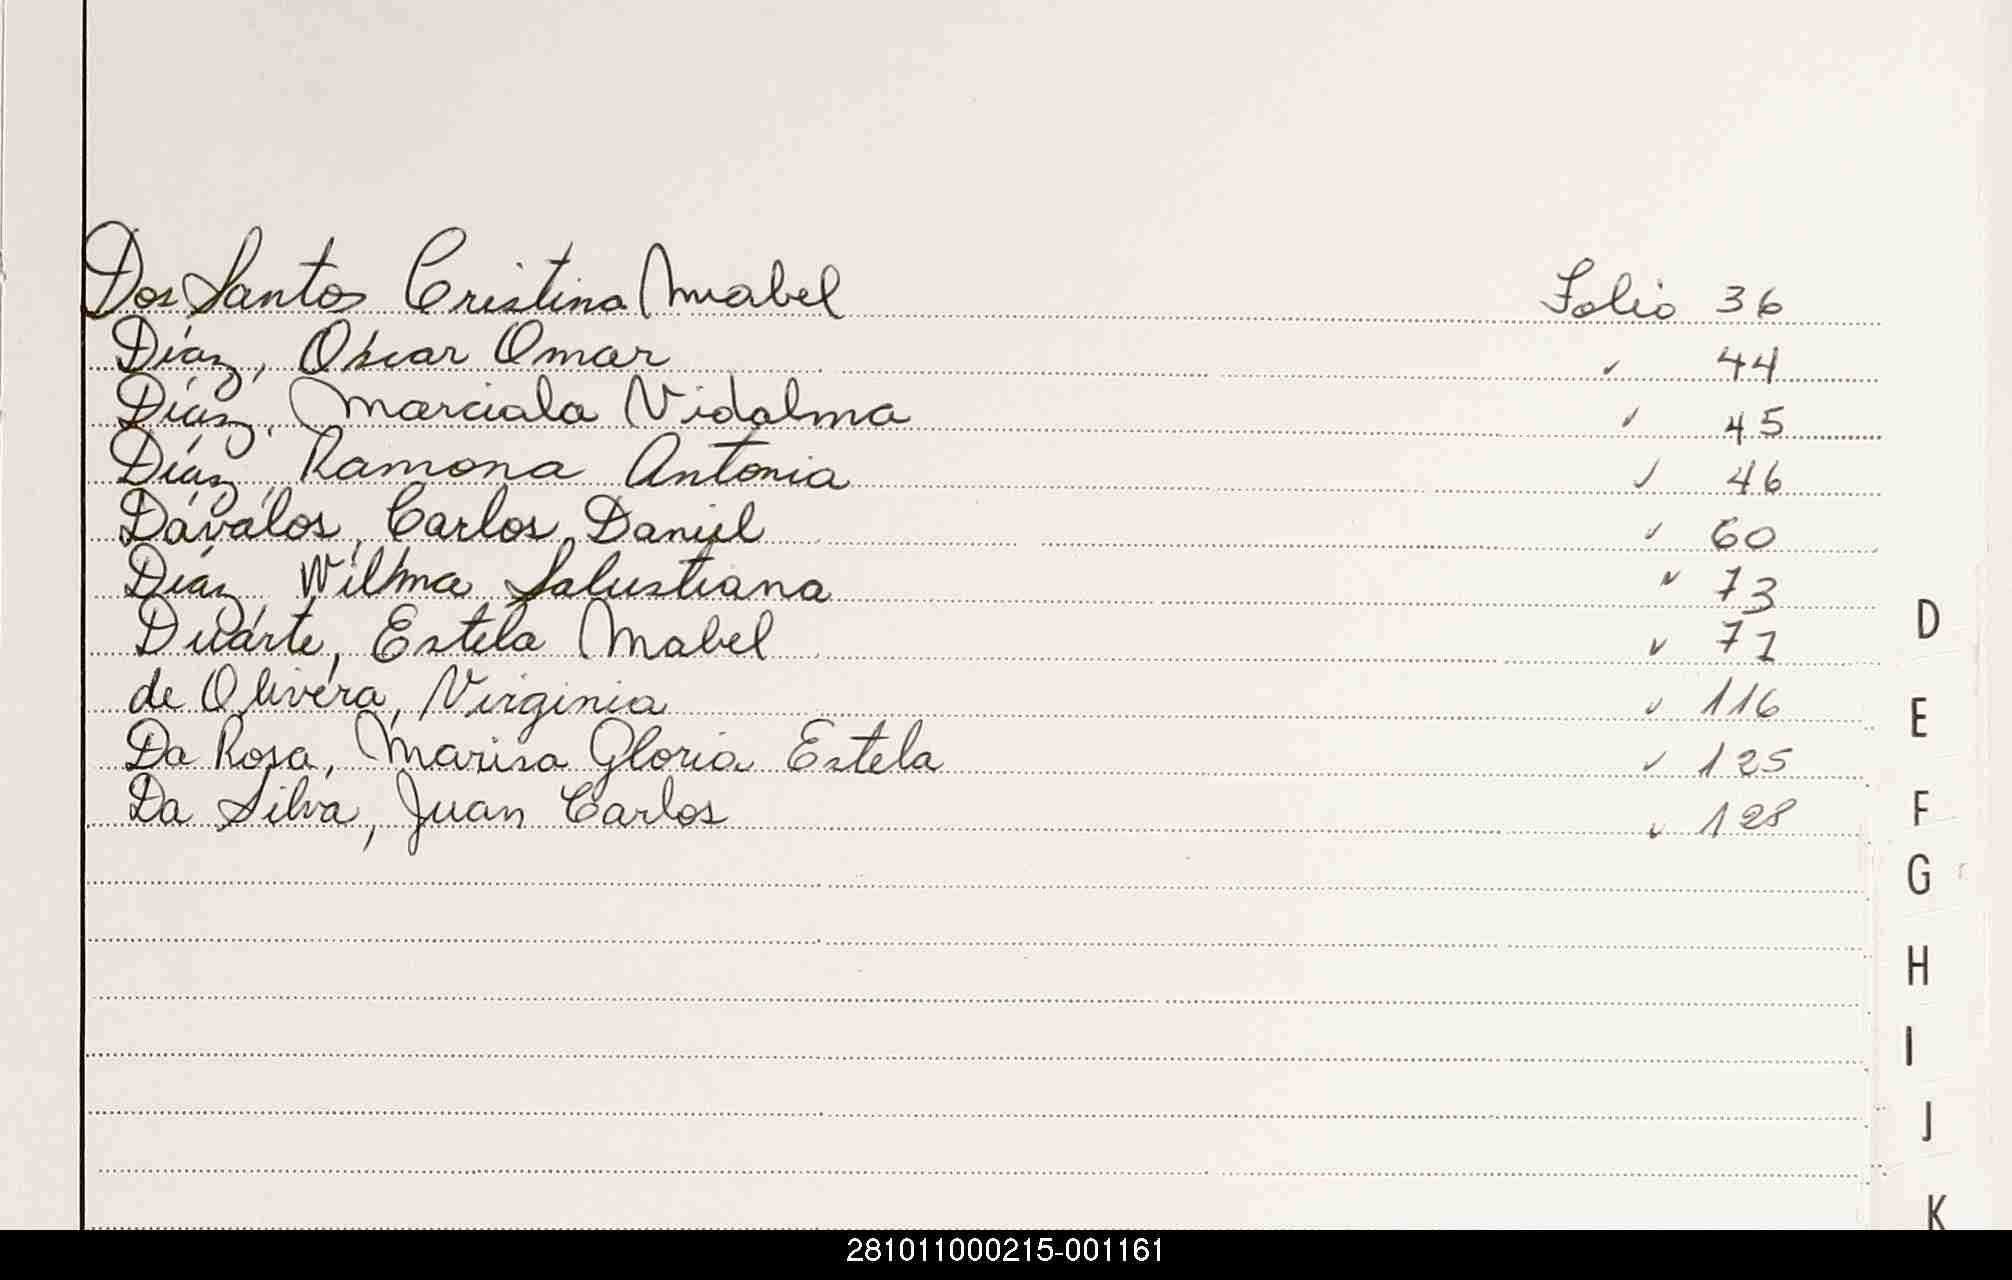 Dos Santos Cristina Mabel Folio 36
Díaz, Oscar Omar " 44
Díaz, Marciala Vidalma " 45
Díaz, Ramona Antonia " 46
Dávalos, Carlos Daniel " 60
Díaz, Wilma Salustiana " 73
Duarte, Estela Mabel " 71
de Olivera, Virginia " 116
Da Rosa, Marisa Gloria Estela " 125
Da Silva, Juan Carlos " 128
D
E
F
G
H
I
J
K
281011000215-001161